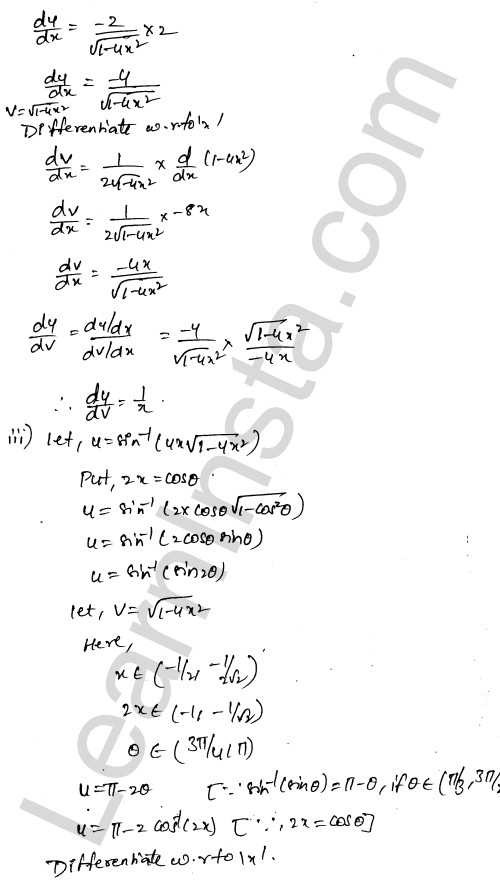 dy/dx = -2/√1-4x² × 2
dy/dx = -4/√1-4x²
V = √1-4x²
Differentiate w.r.to 'x'
dv/dx = 1/2√1-4x² × d/dx (1-4x²)
dv/dx = 1/2√1-4x² × -8x
dv/dx = -4x/√1-4x²
dy/dv = dy/dx / dv/dx = -4/√1-4x² × √1-4x²/-4x
∴ dy/dv = 1/x.
iii) let, u = sin⁻¹(4x√1-4x²)
Put, 2x = cosθ.
u = sin⁻¹(2x cosθ √1-cos²θ)
u = sin⁻¹(2cosθ sinθ)
u = sin⁻¹(sin2θ)
let, V = √1-4x²
Here,
x ∈ (-1/2, -1/2√2)
2x ∈ (-1, -1/√2)
θ ∈ (3π/4, π)
u = π-2θ [∵ sin⁻¹(sinθ) = π-θ, if θ ∈ (π/3, 3π/2
u = π-2cos⁻¹(2x) [∵, 2x = cosθ]
Differentiate w.r.to 'x'.
LearnInsta.com